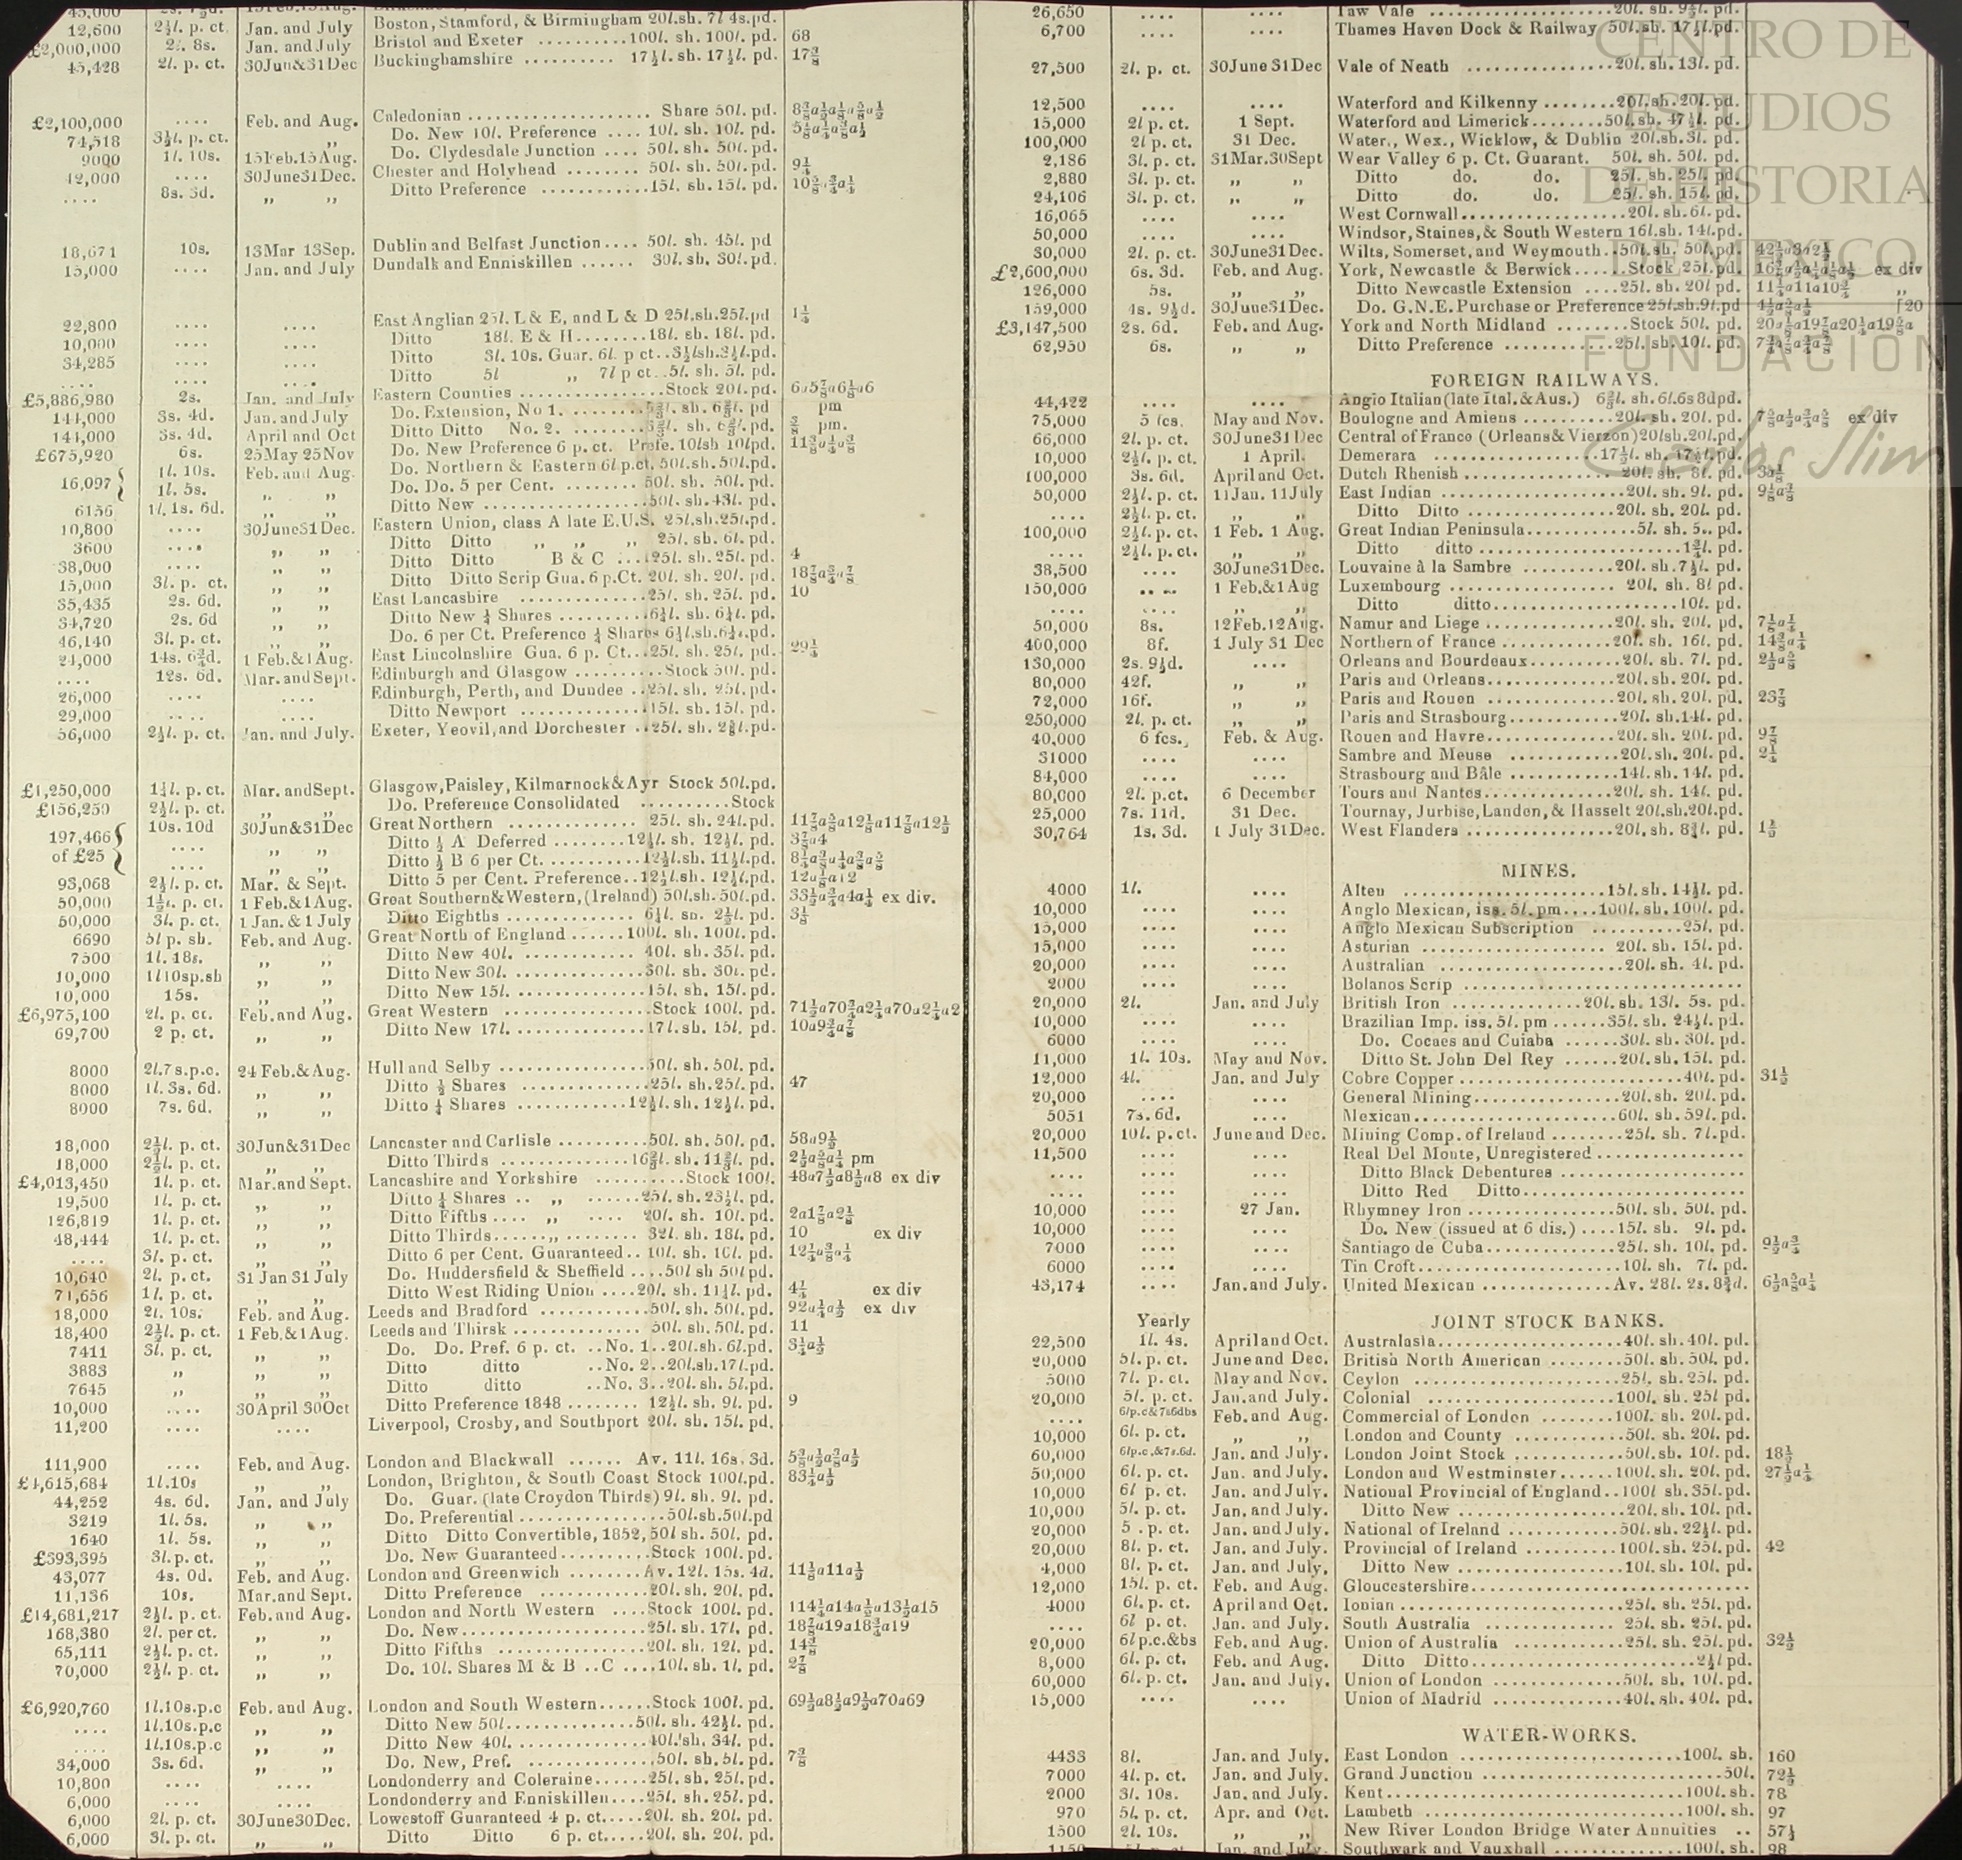 12,600 2½l. p. ct. Jan. and July Boston, Stamford, & Birmingham 20l.sh. 7l 4s.pd.
£2,000,000 2l. 8s. Jan. and July Bristol and Exeter .......... 100l. sh. 100l. pd. 68
45,428 2l. p. ct. 30Jun&31Dec Buckinghamshire .......... 17½l. sh. 17½l. pd. 17⅜
£2,100,000 .... Feb. and Aug. Caledonian .................... Share 50l. pd.
74,518 3½l. p. ct. „ Do. New 10l. Preference .... 10l. sh. 10l. pd.
9000 1l. 10s. 15Feb.15Aug. Do. Clydesdale Junction .... 50l. sh. 50l. pd.
42,000 .... 30June31Dec. Chester and Holyhead ........ 50l. sh. 50l. pd. 9¼
.... 8s. 3d. „ „ Ditto Preference ............ 15l. sh. 15l. pd.
18,671 10s. 13Mar 13Sep. Dublin and Belfast Junction.... 50l. sh. 45l. pd
15,000 .... Jan. and July Dundalk and Enniskillen ...... 30l. sh. 30l. pd.
22,800 .... .... East Anglian 25l. L & E, and L & D 25l.sh.25l.pd 1¼
10,000 .... .... Ditto 18l. E & H........18l. sh. 18l. pd.
34,285 .... .... Ditto 3l. 10s. Guar. 6l. p ct..3½lsh.3½l.pd.
.... .... .... Ditto 5l „ 7l p ct..5l. sh. 5l. pd.
£5,886,980 2s. Jan. and July Eastern Counties ................Stock 20l. pd. 6a5⅞a6⅛a6
144,000 3s. 4d. Jan. and July Do. Extension, No 1. ........ 6⅔l. sh. 6⅔l. pd pm
144,000 3s. 4d. April and Oct Ditto Ditto No. 2. ........ 6⅔l. sh. 6⅔l. pd. pm.
£675,920 6s. 25May 25Nov Do. New Preference 6 p. ct. Prefe. 10lsh 10lpd.
16,097 1l. 10s. Feb. and Aug. Do. Northern & Eastern 6l p.ct. 50l.sh.50l.pd.
1l. 5s. „ „ Do. Do. 5 per Cent. ........ 50l. sh. 50l. pd.
6156 1l. 1s. 6d. „ „ Ditto New ..................50l. sh. 43l. pd.
10,800 .... 30June31Dec. Eastern Union, class A late E.U.S. 25l.sh.25l.pd.
3600 .... „ „ Ditto Ditto „ „ „ 25l. sh. 6l. pd.
38,000 .... „ „ Ditto Ditto B & C ....25l. sh. 25l. pd. 4
15,000 3l. p. ct. „ „ Ditto Ditto Scrip Gua. 6 p.Ct. 20l. sh. 20l. pd 18⅞a¾a⅞
35,435 2s. 6d. „ „ East Lancashire ................25l. sh. 25l. pd. 10
34,720 2s. 6d „ „ Ditto New ¼ Shares ............6¼l. sh. 6¼l. pd.
46,140 3l. p. ct. „ „ Do. 6 per Ct. Preference ¼ Shares 6¼l.sh.6¼l.pd.
24,000 14s. 6¾d. 1 Feb.&1Aug. East Lincolnshire Gua. 6 p. Ct...25l. sh. 25l. pd. 29¼
.... 12s. 6d. Mar. and Sept. Edinburgh and Glasgow ..........Stock 50l. pd.
26,000 .... .... Edinburgh, Perth, and Dundee ..25l. sh. 25l. pd.
29,000 .... .... Ditto Newport ..............15l. sh. 15l. pd.
56,000 2½l. p. ct. Jan. and July. Exeter, Yeovil, and Dorchester ..25l. sh. 2⅝l.pd.
£1,250,000 1¼l. p. ct. Mar. andSept. Glasgow, Paisley, Kilmarnock&Ayr Stock 50l.pd.
£156,250 2½l. p. ct. „ „ Do. Preference Consolidated ..........Stock
197,466 10s. 10d 30Jun&31Dec Great Northern .............. 25l. sh. 24l. pd. 11⅞a⅝a12⅛a11⅞a12½
of £25 .... „ „ Ditto ½ A Deferred ........12½l. sh. 12½l. pd. 3⅞a4
.... „ „ Ditto ½ B 6 per Ct. ..........12½l.sh. 11½l.pd.
93,068 2½l. p. ct. Mar. & Sept. Ditto 5 per Cent. Preference..12½l.sh. 12½l.pd. 12a⅛a12
50,000 1½l. p. ct. 1 Feb.&1Aug. Great Southern&Western,(Ireland) 50l.sh.50l.pd. 33½a¾a4a¼ ex div.
50,000 3l. p. ct. 1 Jan.&1 July Ditto Eighths ............... 6¼l. sh. 2½l. pd. 3⅛
6690 5l p. sh. Feb. and Aug. Great North of England ......100l. sh. 100l. pd.
7500 1l. 18s. „ „ Ditto New 40l. ............ 40l. sh. 35l. pd.
10,000 1l10sp.sh „ „ Ditto New 30l. ..............30l. sh. 30l. pd.
10,000 15s. „ „ Ditto New 15l. ..............15l. sh. 15l. pd.
£6,975,100 2l. p. ct. Feb.and Aug. Great Western ................Stock 100l. pd. 71½a70¾a2¼a70a2¼a2
69,700 2 p. ct. „ „ Ditto New 17l. ..............17l. sh. 15l. pd. 10a9¾a⅞
8000 2l.7s.p.c. 24 Feb.&Aug. Hull and Selby ................50l. sh. 50l. pd.
8000 1l. 3s. 6d. „ „ Ditto ½ Shares ..............25l. sh. 25l. pd. 47
8000 7s. 6d. „ „ Ditto ¼ Shares ............12½l. sh. 12½l. pd.
18,000 2½l. p. ct. 30Jun&31Dec Lancaster and Carlisle ..........50l. sh. 50l. pd. 58a9½
18,000 2½l. p. ct. „ „ Ditto Thirds ..............16⅔l. sh. 11⅔l. pd. 2½a⅝a¼ pm
£4,013,450 1l. p. ct. Mar.and Sept. Lancashire and Yorkshire ..........Stock 100l. 48a7½a8½a8 ex div
19,500 1l. p. ct. „ „ Ditto ¼ Shares .. „ ......25l. sh. 23½l. pd.
126,819 1l. p. ct. „ „ Ditto Fifths .... „ .... 20l. sh. 10l. pd. 2a1⅞a2⅛
48,444 1l. p. ct. „ „ Ditto Thirds......„ ........ 32l. sh. 18l. pd. 10 ex div
.... 3l. p. ct. „ „ Ditto 6 per Cent. Guaranteed.. 10l. sh. 10l. pd. 12¼a⅜a¼
10,640 2l. p. ct. 31 Jan 31 July Do. Huddersfield & Sheffield ....50l sh 50l pd.
71,656 1l. p. ct. „ „ Ditto West Riding Union ....20l. sh. 11¼l. pd. 4¼ ex div
18,000 2l. 10s. Feb. and Aug. Leeds and Bradford ............50l. sh. 50l. pd. 92a¼a½ ex div
18,400 2½l. p. ct. 1 Feb.&1Aug. Leeds and Thirsk .............. 50l. sh. 50l. pd. 11
7411 3l. p. ct. „ „ Do. Do. Pref. 6 p. ct. ..No. 1..20l.sh. 6l.pd. 3¼a½
3883 „ „ „ Ditto ditto ..No. 2..20l.sh.17l.pd.
7645 „ „ „ Ditto ditto ..No. 3..20l. sh. 5l.pd.
10,000 .... 30April 30Oct Ditto Preference 1848 ........ 12½l. sh. 9l. pd. 9
11,200 .... .... Liverpool, Crosby, and Southport 20l. sh. 15l. pd.
111,900 .... Feb. and Aug. London and Blackwall ...... Av. 11l. 16s. 3d.
£4,615,684 1l.10s „ „ London, Brighton, & South Coast Stock 100l.pd. 83¼a½
44,252 4s. 6d. Jan. and July Do. Guar. (late Croydon Thirds) 9l. sh. 9l. pd.
3219 1l. 5s. „ „ Do. Preferential ................50l.sh.50l.pd
1640 1l. 5s. „ „ Ditto Ditto Convertible, 1852, 50l sh. 50l. pd.
£393,395 3l. p. ct. „ „ Do. New Guaranteed..........Stock 100l. pd.
43,077 4s. 0d. Feb. and Aug. London and Greenwich ........Av. 12l. 15s. 4d. 11⅛a11a½
11,136 10s. Mar.and Sept. Ditto Preference ............20l. sh. 20l. pd.
£14,681,217 2½l. p. ct. Feb. and Aug. London and North Western ....Stock 100l. pd. 114¼a14a½a13½a15
168,380 2l. per ct. „ „ Do. New....................25l. sh. 17l. pd. 18⅞a19a18¾a19
65,111 2½l. p. ct. „ „ Ditto Fifths ................20l. sh. 12l. pd. 14⅜
70,000 2½l. p. ct. „ „ Do. 10l. Shares M & B ..C ....10l. sh. 1l. pd. 2⅞
£6,920,760 1l.10s.p.c Feb. and Aug. London and South Western......Stock 100l. pd. 69½a8½a9½a70a69
.... 1l.10s.p.c „ „ Ditto New 50l..............50l. sh. 42½l. pd.
.... 1l.10s.p.c „ „ Ditto New 40l. ..............40l. sh. 34l. pd.
34,000 3s. 6d. „ „ Do. New, Pref. ..............50l. sh. 5l. pd. 7⅜
10,800 .... .... Londonderry and Coleraine......25l. sh. 25l. pd.
6,000 .... .... Londonderry and Enniskillen....25l. sh. 25l. pd.
6,000 2l. p. ct. 30June30Dec. Lowestoff Guaranteed 4 p. ct.....20l. sh. 20l. pd.
6,000 3l. p. ct. „ „ Ditto Ditto 6 p. ct.....20l. sh. 20l. pd.
26,650 .... .... Taw Vale .................... 20l. sh. 9½l. pd.
6,700 .... .... Thames Haven Dock & Railway 50l.sh. 17½l.pd.
27,500 2l. p. ct. 30June 31Dec Vale of Neath ................20l. sh. 13l. pd.
12,500 .... .... Waterford and Kilkenny ........20l. sh. 20l. pd.
15,000 2l p. ct. 1 Sept. Waterford and Limerick........50l. sh. 47½l. pd.
100,000 2l p. ct. 31 Dec. Water., Wex., Wicklow, & Dublin 20l.sh.3l. pd.
2,186 3l. p. ct. 31Mar.30Sept Wear Valley 6 p. Ct. Guarant. 50l. sh. 50l. pd.
2,880 3l. p. ct. „ „ Ditto do. do. 25l. sh. 25l. pd.
24,106 3l. p. ct. „ „ Ditto do. do. 25l. sh. 15l. pd.
16,065 .... .... West Cornwall..................20l. sh. 6l. pd.
50,000 .... .... Windsor, Staines, & South Western 16l.sh. 14l.pd.
30,000 2l. p. ct. 30June31Dec. Wilts, Somerset, and Weymouth ..50l. sh. 50l. pd.
£2,600,000 6s. 3d. Feb. and Aug. York, Newcastle & Berwick......Stock 25l. pd. ex div
126,000 5s. „ „ Ditto Newcastle Extension ....25l. sh. 20l pd. 11¼a11a10¾ „
159,000 4s. 9½d. 30June31Dec. Do. G.N.E. Purchase or Preference 25l.sh.9l.pd [20
£3,147,500 2s. 6d. Feb. and Aug. York and North Midland ........Stock 50l. pd. 20a⅛a19⅞a20¼a19⅝a
62,950 6s. „ „ Ditto Preference ............25l. sh. 10l. pd.
FOREIGN RAILWAYS.
44,422 .... .... Anglo Italian (late Ital. & Aus.) 6⅔l. sh. 6l.6s 8dpd.
75,000 5 fcs. May and Nov. Boulogne and Amiens ..........20l. sh. 20l. pd. ex div
66,000 2l. p. ct. 30June31Dec Central of France (Orleans & Vierzon)20lsh.20l.pd.
10,000 2½l. p. ct. 1 April. Demerara ................17½l. sh. 17½l. pd.
100,000 3s. 6d. April and Oct. Dutch Rhenish ................20l. sh. 8l. pd.
50,000 2½l. p. ct. 11Jan. 11July East Indian ..................20l. sh. 9l. pd.
.... 2½l. p. ct. „ „ Ditto Ditto ..................20l. sh. 20l. pd.
100,000 2½l. p. ct. 1 Feb. 1 Aug. Great Indian Peninsula..............5l. sh. 5.. pd.
.... 2½l. p. ct. „ „ Ditto ditto ....................1¾l. pd.
38,500 .... 30June31Dec. Louvaine à la Sambre ..........20l. sh. 7½l. pd.
150,000 .... 1 Feb.&1Aug Luxembourg .................. 20l. sh. 8l pd
.... .... „ „ Ditto ditto....................10l. pd.
50,000 8s. 12Feb.12Aug. Namur and Liege ..............20l. sh. 20l. pd. 7⅛a¼
400,000 8f. 1 July 31 Dec Northern of France ............20l. sh. 16l. pd. 14⅜a¼
130,000 2s. 9½d. .... Orleans and Bourdeaux..........20l. sh. 7l. pd. 2½a⅝
80,000 42f. „ „ Paris and Orleans..............20l. sh. 20l. pd.
72,000 16f. „ „ Paris and Rouen ..............20l. sh. 20l. pd. 23⅞
250,000 2l. p. ct. „ „ Paris and Strasbourg............20l. sh.14l. pd.
40,000 6 fcs. Feb. & Aug. Rouen and Havre..............20l. sh. 20l. pd. 9⅞
31000 .... .... Sambre and Meuse ............20l. sh. 20l. pd. 2¼
84,000 .... .... Strasbourg and Bâle ............14l. sh. 14l. pd.
80,000 2l. p.ct. 6 December Tours and Nantes..............20l. sh. 14l. pd.
25,000 7s. 11d. 31 Dec. Tournay, Jurbise, Landen, & Hasselt 20l.sh.20l.pd.
30,764 1s. 3d. 1 July 31Dec. West Flanders ................20l. sh. 8¾l. pd. 1½
MINES.
4000 1l. .... Alten ......................15l. sh. 14½l. pd.
10,000 .... .... Anglo Mexican, iss. 5l. pm....100l. sh. 100l. pd.
15,000 .... .... Anglo Mexican Subscription ..........25l. pd.
15,000 .... .... Asturian .................... 20l. sh. 15l. pd.
20,000 .... .... Australian ....................20l. sh. 4l. pd.
2000 .... .... Bolanos Scrip ..............................
20,000 2l. Jan. and July British Iron ..............20l. sh. 13l. 5s. pd.
10,000 .... .... Brazilian Imp. iss. 5l. pm ......35l. sh. 24½l. pd.
6000 .... .... Do. Cocaes and Cuiaba ......30l. sh. 30l. pd.
11,000 1l. 10s. May and Nov. Ditto St. John Del Rey ......20l. sh. 15l. pd.
12,000 4l. Jan. and July Cobre Copper ........................40l. pd. 31½
20,000 .... .... General Mining................20l. sh. 20l. pd.
5051 7s. 6d. .... Mexican......................60l. sh. 59l. pd.
20,000 10l. p. ct. June and Dec. Mining Comp. of Ireland ........25l. sh. 7l.pd.
11,500 .... .... Real Del Monte, Unregistered ................
.... .... .... Ditto Black Debentures ....................
.... .... .... Ditto Red Ditto........................
10,000 .... 27 Jan. Rhymney Iron ................50l. sh. 50l. pd.
10,000 .... .... Do. New (issued at 6 dis.) ....15l. sh. 9l. pd.
7000 .... .... Santiago de Cuba..............25l. sh. 10l. pd. 9½a¾
6000 .... .... Tin Croft......................10l. sh. 7l. pd.
43,174 .... Jan. and July. United Mexican ..............Av. 28l. 2s. 8¾d. 6½a⅝a¼
JOINT STOCK BANKS.
Yearly
22,500 1l. 4s. April and Oct. Australasia....................40l. sh. 40l. pd.
20,000 5l. p. ct. June and Dec. British North American ........50l. sh. 50l. pd.
5000 7l. p. ct. May and Nov. Ceylon ......................25l. sh. 25l. pd.
20,000 5l. p. ct. Jan. and July. Colonial ....................100l. sh. 25l pd
.... 6lp.c&7s6dbs Feb. and Aug. Commercial of London ........100l. sh. 20l. pd.
10,000 6l. p. ct. „ „ London and County ............50l. sh. 20l. pd.
60,000 6lp.c.&7s.6d. Jan. and July. London Joint Stock ............50l. sh. 10l. pd. 18½
50,000 6l. p. ct. Jan. and July. London and Westminster......100l. sh. 20l. pd. 27½a¼
10,000 6l p. ct. Jan. and July. National Provincial of England..100l sh. 35l. pd.
10,000 5l. p. ct. Jan. and July. Ditto New ..................20l. sh. 10l. pd.
20,000 5 . p. ct. Jan. and July. National of Ireland ..........50l. sh. 22½l. pd.
20,000 8l. p. ct. Jan. and July. Provincial of Ireland ........100l. sh. 25l. pd. 42
4,000 8l. p. ct. Jan. and July. Ditto New ..................10l. sh. 10l. pd.
12,000 15l. p. ct. Feb. and Aug. Gloucestershire..............................
4000 6l. p. ct. April and Oct. Ionian ......................25l. sh. 25l. pd.
.... 6l p. ct. Jan. and July. South Australia ..............25l. sh. 25l. pd.
20,000 6l p.c.&bs Feb. and Aug. Union of Australia ............25l. sh. 25l. pd. 32½
8,000 6l. p. ct. Feb. and Aug. Ditto Ditto......................2½l pd.
60,000 6l. p. ct. Jan. and July. Union of London ..............50l. sh. 10l. pd.
15,000 .... .... Union of Madrid ..............40l. sh. 40l. pd.
WATER-WORKS.
4433 8l. Jan. and July. East London ........................100l. sh. 160
7000 4l. p. ct. Jan. and July. Grand Junction ..........................50l. 72½
2000 3l. 10s. Jan. and July. Kent..................................100l. sh. 78
970 5l. p. ct. Apr. and Oct. Lambeth ............................100l. sh. 97
1500 2l. 10s. „ „ New River London Bridge Water Annuities .. 57½
1150 Jan. and July. Southwark and Vauxhall ................100l. sh. 98
CENTRO DE
ESTUDIOS
DE HISTORIA
DE MÉXICO
FUNDACIÓN
Carlos Slim